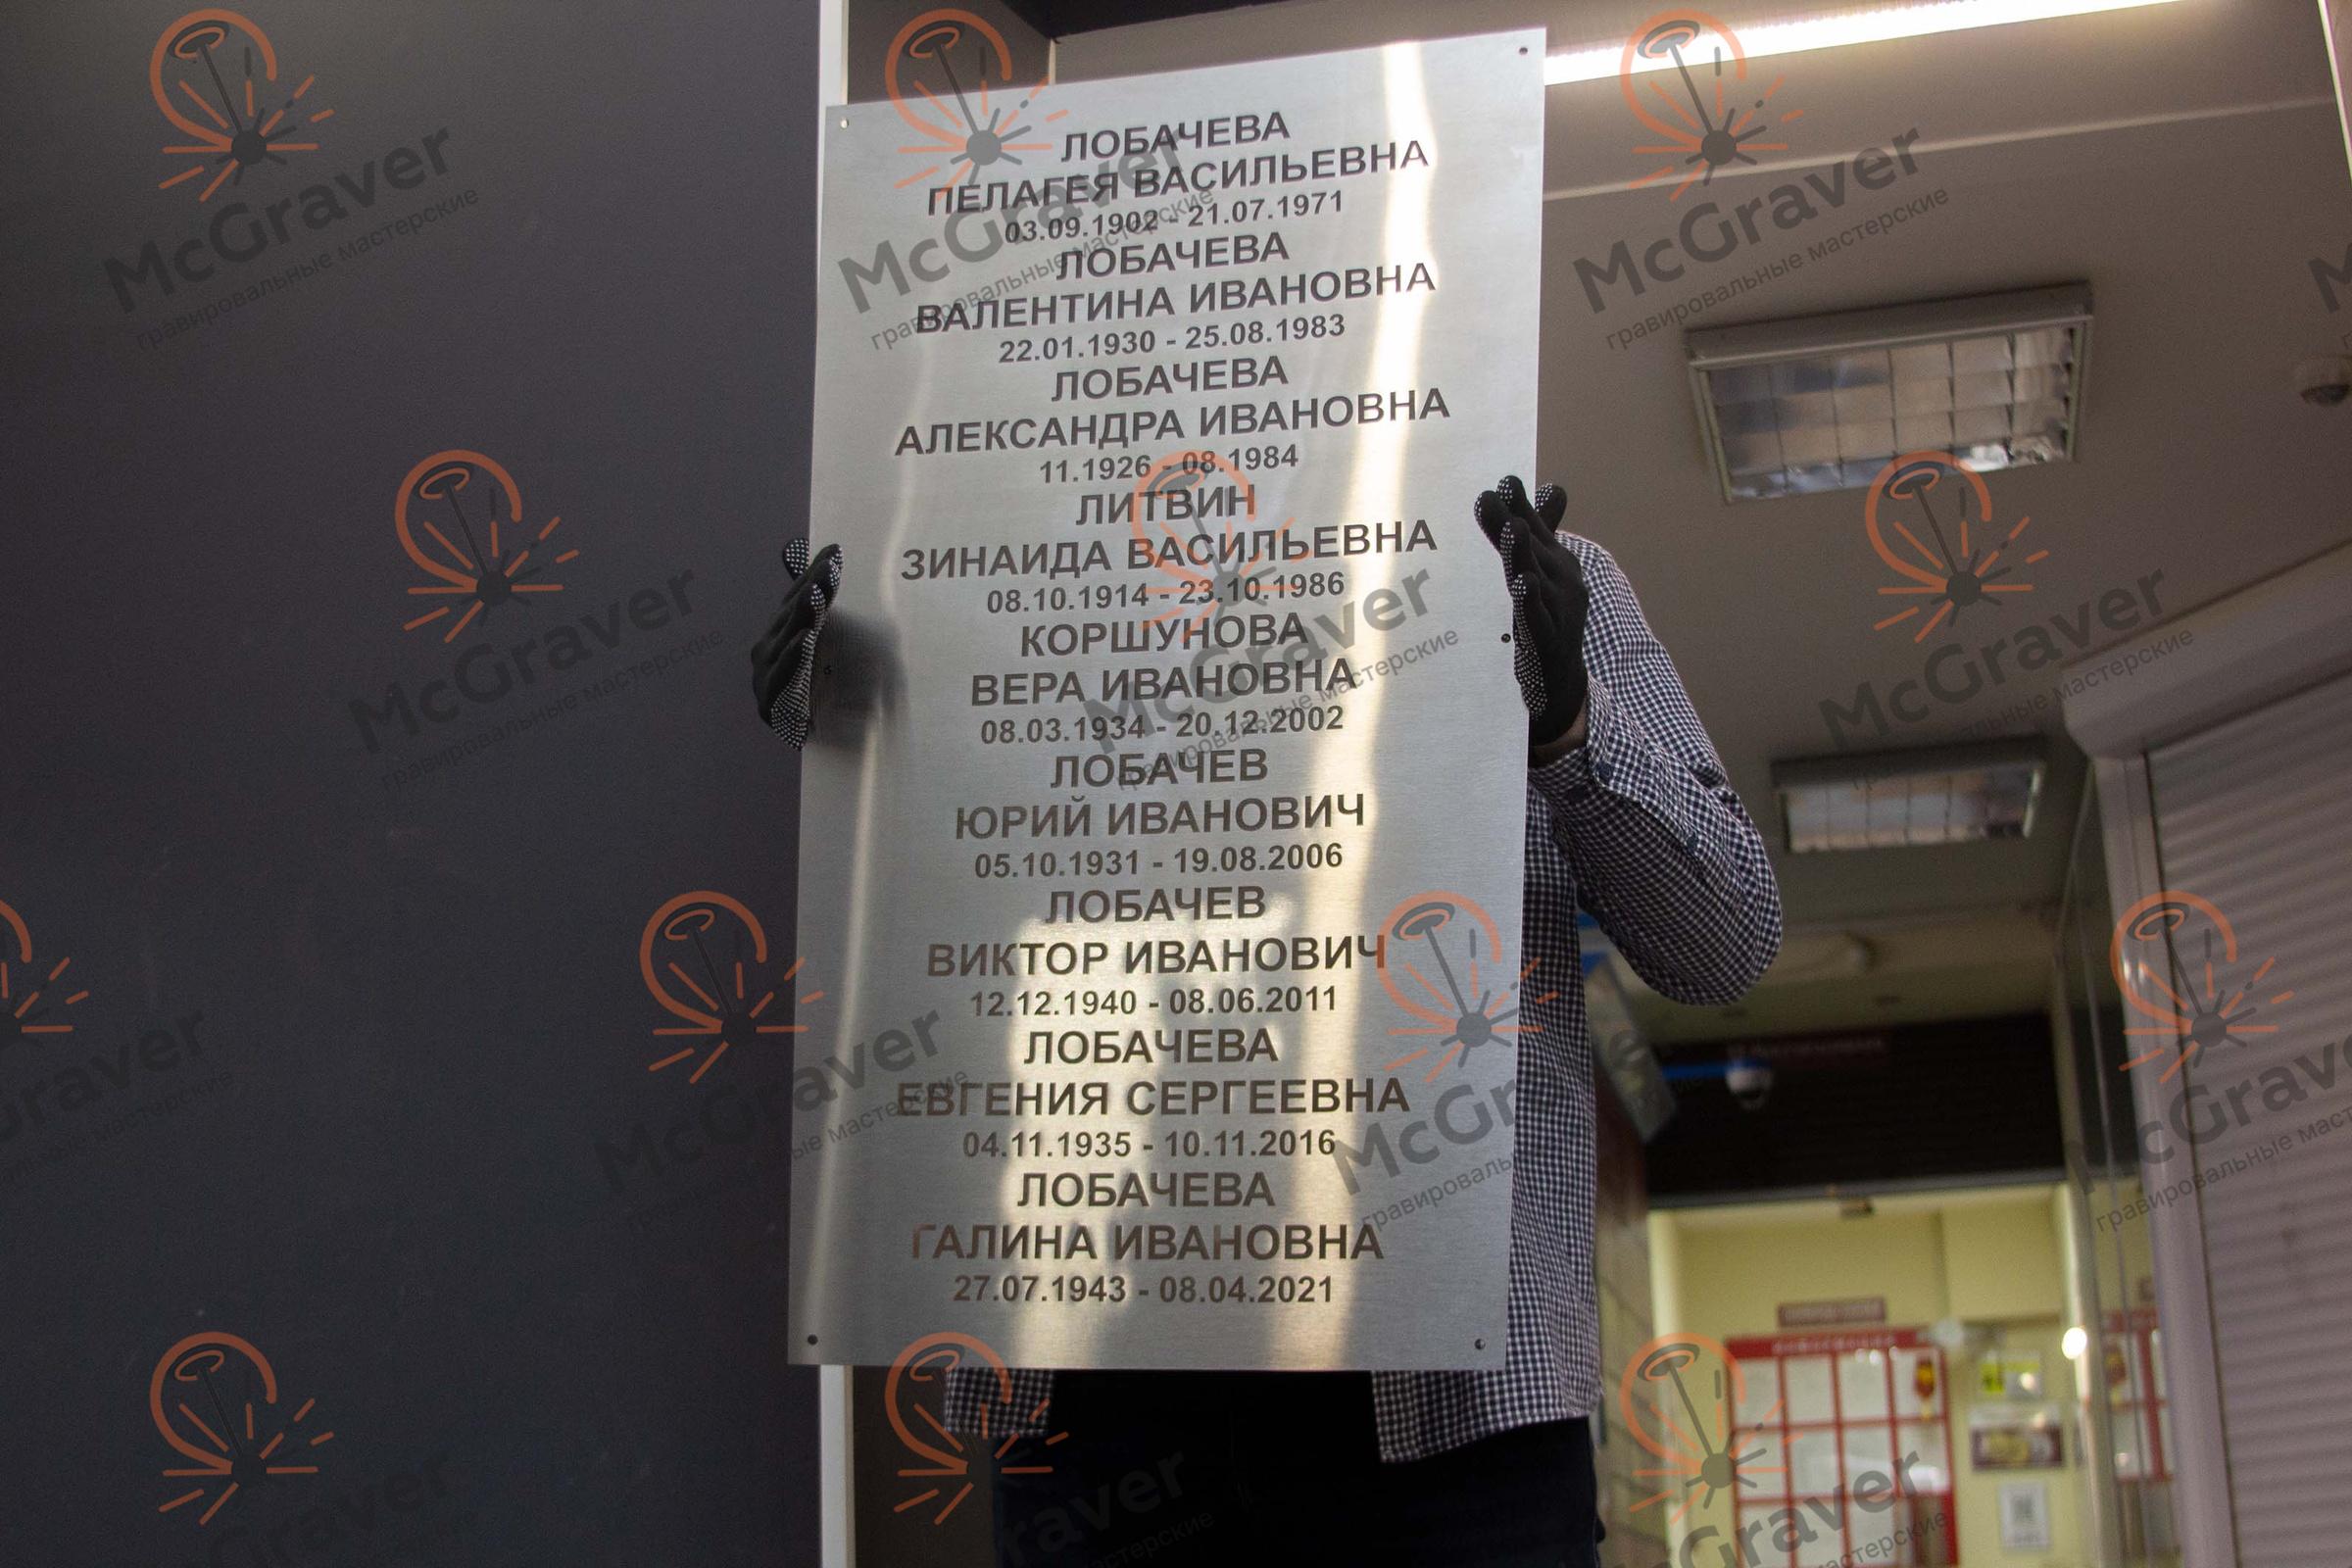 ЛОБАЧЕВА
ПЕЛАГЕЯ ВАСИЛЬЕВНА
03.09.1902 - 21.07.1971
ЛОБАЧЕВА
ВАЛЕНТИНА ИВАНОВНА
22.01.1930 - 25.08.1983
ЛОБАЧЕВА
АЛЕКСАНДРА ИВАНОВНА
11.1926 - 08.1984
ЛИТВИН
ЗИНАИДА ВАСИЛЬЕВНА
08.10.1914 - 23.10.1986
КОРШУНОВА
ВЕРА ИВАНОВНА
08.03.1934 - 20.12.2002
ЛОБАЧЕВ
ЮРИЙ ИВАНОВИЧ
05.10.1931 - 19.08.2006
ЛОБАЧЕВ
ВИКТОР ИВАНОВИЧ
12.12.1940 - 08.06.2011
ЛОБАЧЕВА
ЕВГЕНИЯ СЕРГЕЕВНА
04.11.1935 - 10.11.2016
ЛОБАЧЕВА
ГАЛИНА ИВАНОВНА
27.07.1943 - 08.04.2021
McGraver
гравировальные мастерские